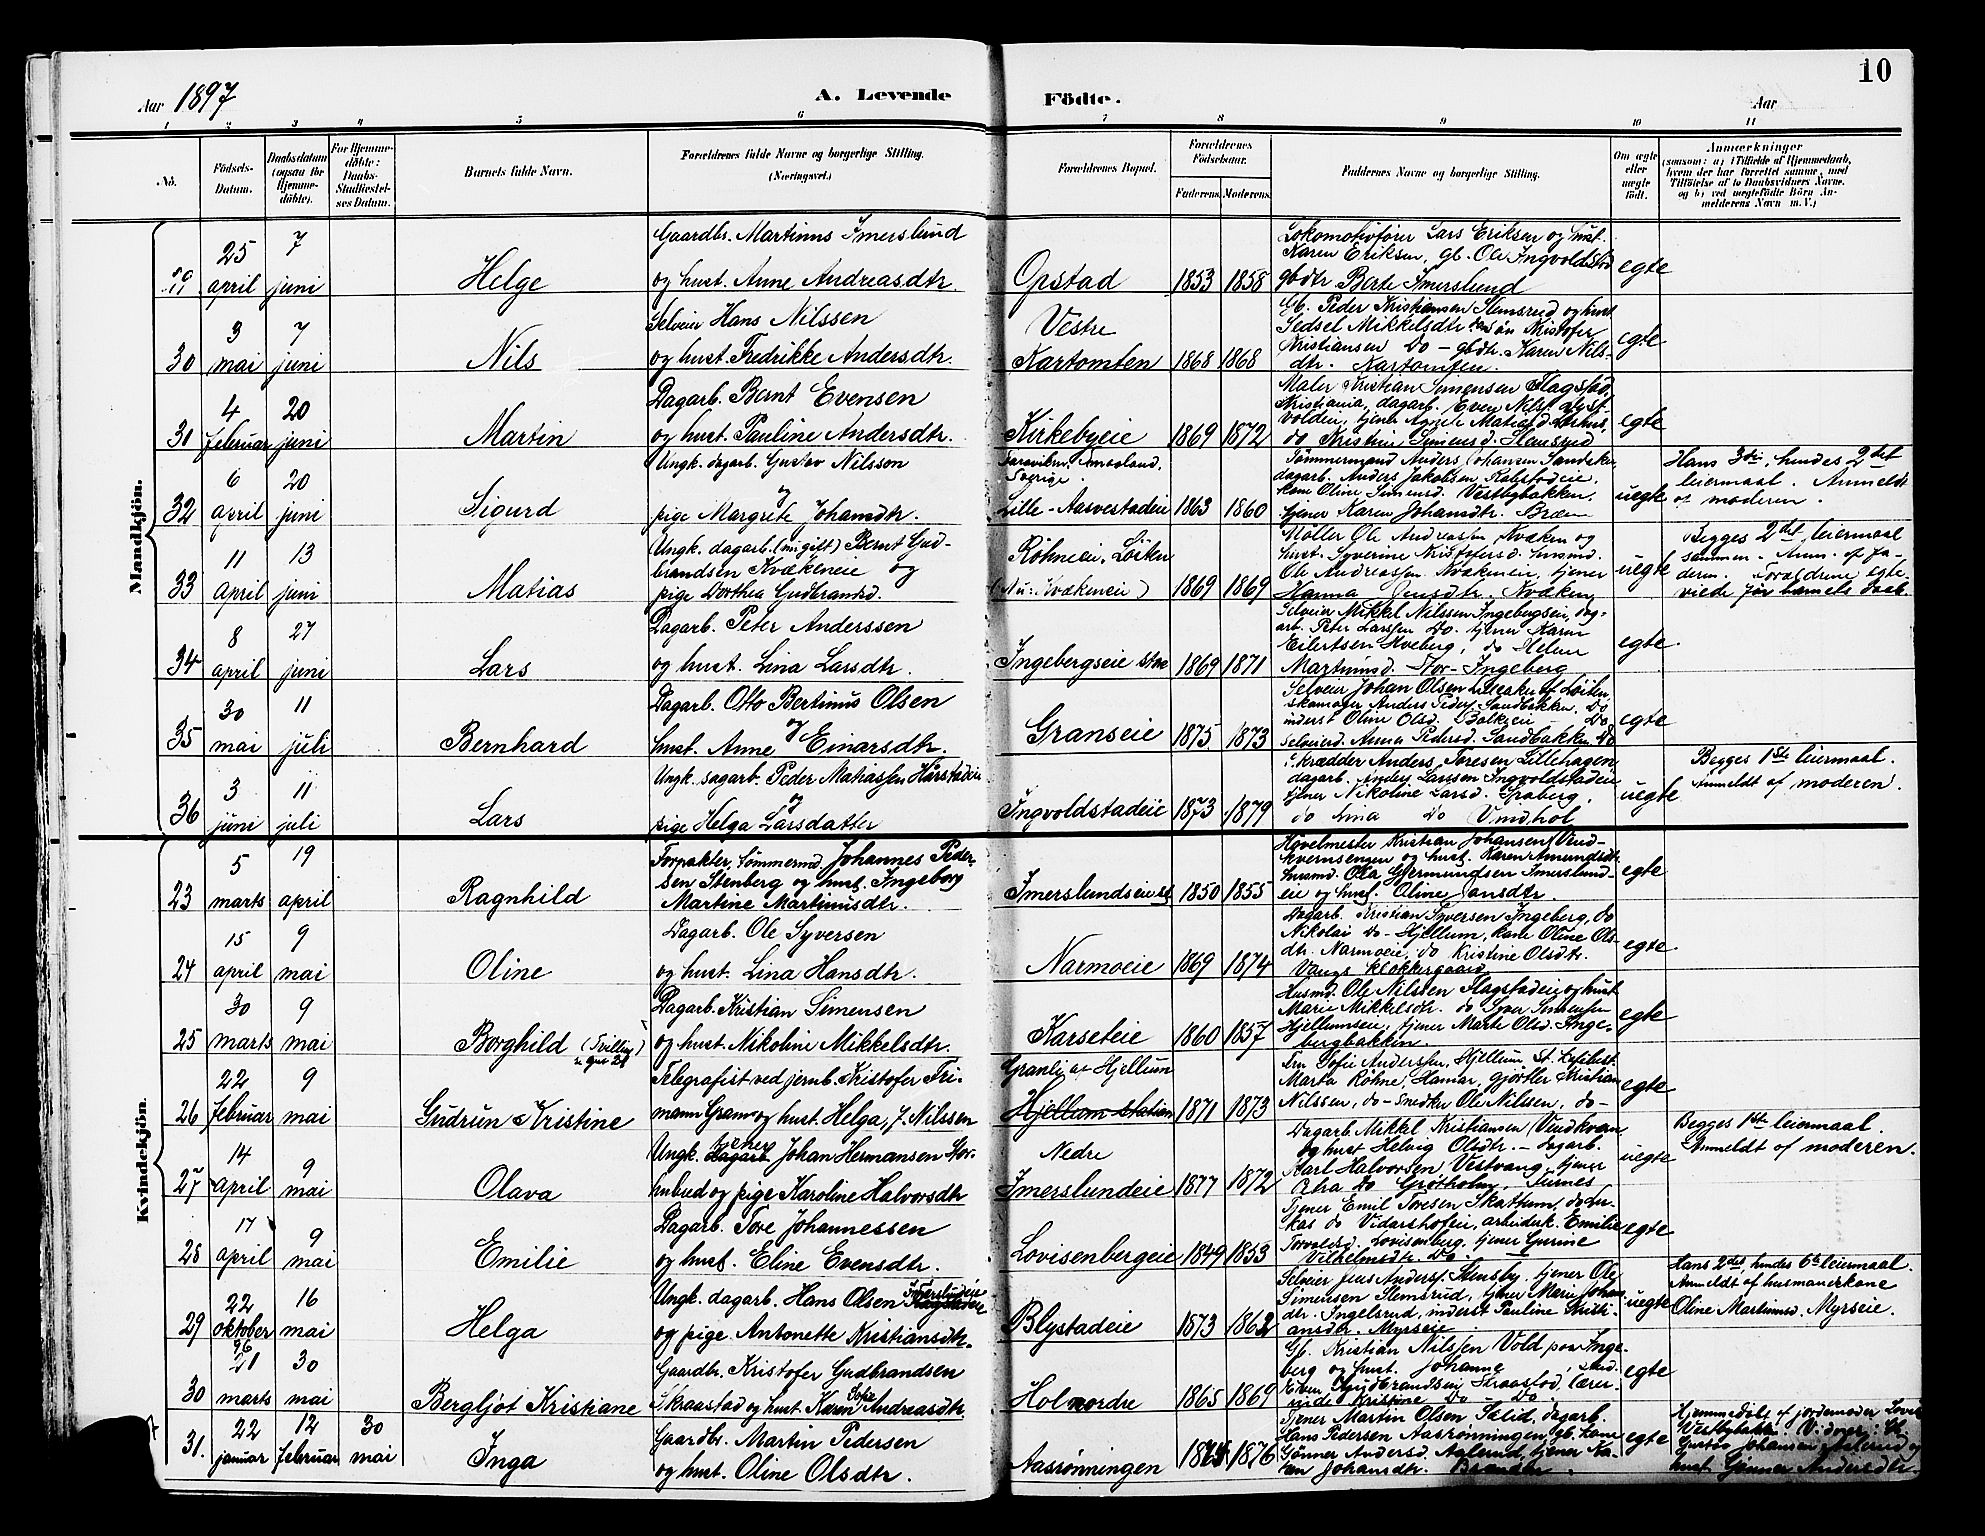 10
Aar 1897
A. Levende
Födte.
Aar
1 2 3 4 5 6 7 8 9 10 11
No.
Födsels-
Datum.
Daabsdatum
(ogsaa for
Hjemme-
döbte).
For Hjemme-
döbte:
Daabs-
Stadfæstel-
ses Datum.
Barnets fulde Navn.
Forældrenes fulde Navne og borgerlige Stilling.
(Næringsvei.)
Forældrenes Bopæl.
Forældrenes
Födselsaar.
Faderens.
Moderens.
Faddernes Navne og borgerlige Stilling.
Om ægte
eller
uægte
född.
Anmærkninger
(saasom: a) i Tilfælde af Hjemmedaab,
hvem der har forrettet samme, med
Tilföielse af to Daabsvidners Navne,
og b) ved uægtefödte Börn An-
melderens Navn m. V.)
Mandkjön.
25 april
7 juni
Helge
Gaardbr. Martinus Imerslund
og hust. Anne Andreasdtr.
Opstad
1853 1858
Lokomotivfører Lars Eriksen og hust.
Karen Eriksen, gb. Ole Ingvoldstad
gbdtr Berte Imerslund
egte
30
3 mai
7 juni
Nils
Selveier Hans Nilssen
og hust. Fredrikke Andersdtr.
Vestre
Kartomten
1868 1868
Gb. Peder Kristiansen Slemsrud og hust
Sedsel Mikkelsdtr søn Kristofer
Kristiansen Do – gbdtr. Karen Nils-
dtr. Kartomten.
egte
31
4 februar
20 juni
Martin
Dagarb. Bernt Evensen
og hust. Pauline Andersdtr.
Kirkebyeie
1869 1872
Maler Kristian Simensen Flagstad,
Kristiania, dagarb. Even Nils.
do Kristine Simensd. Slemsrud
egte
32
6 april
20 juni
Sigurd
Ungk. dagarb. Gustav Nilsson
og
pige Margrete Johansdtr.
Sverige.
Lille-Aasvestadeie
1863 1860
Tømmermand Anders Johansen Sandaker
dagarb. Anders Jakobsen Kolstadeie,
kone Oline Simensd. Vestbybakken,
tjener Karen Johansdtr. Bræn
uegte
Hans 3die, hendes 2det
leiermaal. Anmeldt
af moderen.
33
11 april
13 juni
Matias
Ungk. dagarb. (nu gift) Bernt Gud-
brandsen Kvækeneie og
pige Dorthea Gudbrandsd.
Röhneeie, Löiten
(Nu: Kvækeneie)
1869 1869
Møller Ole Andreasen Kvæken og
hust. Syverine Kristofersd. husmd.
Ole Andreassen Kvækeneie, tjener
Hanna Jensdtr. Kvæken
uegte
Begges 2det leiermaal
sammen. Anm. af fa-
deren. Forældrene egte-
viede før barnets daab.
34
8 april
27 juni
Lars
Dagarb. Peter Anderssen
og hust. Lina Larsdtr.
Ingebergseie store
1869 1871
Selveier Mikkl Nilssen Ingebergseie, dag-
arb. Peter Larssen Do. tjener Karen
Eilertsen Hveberg, do Helene
Martinusd. Stor-Ingeberg
egte
35
30 mai
11 juli
Bernhard
Dagarb. Otto Bertinus Olsen
og
hust. Anne Einarsdtr.
Granseie
1875 1873
Selveier Johan Olsen Lilleaker Löiten,
skomager Anders Peders. Sandbakken, Do
inderst Oline Olsd. Bolkeeie – Do
selveierd. Anna Pedersd. Sandbakken Do
egte
36
3 juni
11 juli
Lars
Ungk. sagarb. Peder Matiassen Hårstadeie
og
pige Helga Larsdatter
Ingvoldstadeie
1873 1879
Skrædder Anders Toresen Lillehagen,
dagarb. Anders Larssen Ingvoldstadeie
tjener Nikoline Larsd. Spaberg,
do Lina Do Vindhol
uegte
Begges 1ste leiermaal.
Anmeldt af moderen.
Kvindekjön.
23
5 marts
19 april
Ragnhild
Forpakter, tömmermd. Johannes Peder-
sen Stenberg og hust. Ingeborg
Martine Martinusdtr.
Imerslundseie st.
1850 1855
Høvelmester Kristian Johansen Vind-
kvernsengen og hust. Karen Amundsdtr
husmd. Ola Gjermundsen Imerslund-
eie og hust. Oline Jansdtr
egte
24
15 april
9 mai
Oline
Dagarb. Ole Syversen
og hust. Lina Hansdtr.
Narmoeie
1869 1874
Dagarb. Kristian Syversen Ingeberg, do
Nikolai Do – Hjellum, kone Oline Ols-
dtr. Narmoeie, do Kristine Olsdtr.
Vangs klokkergaard
egte
25
30 marts
9 mai
Borghild (Tvilling
Dagarb. Kristian Simensen
og hust. Nikoline Mikkelsdtr.
Karseteie
1860 1857
Husmd. Ole Nilssen Flagstadeie og hust.
Marie Mikkelsdtr. do Syver Simensen
Hjellumseie, tjener Marte Olsd. Inge-
bergbakken.
egte
26
22 februar
9 mai
Gudrun Kristine
Telegrafist ved jernb. Kristofer Tri-
mann Gram og hust. Helga, f. Nilssen
Granli af Hjellum
Hjellum station
1871 1873
Fru Sofie Anderssen, Hjellum St.
Marta Röhne, Hamar, gjørtler Kristian
Nilssen, do – snedker Ole Nilssen, do –
egte
27
14 april
9 mai
Olava
Ungk. Dagarb. Johan Hermansen Stor-
hubud og pige Karoline Halvorsdtr
Nedre
Imerslundeie
1877 1872
Dagarb. Mikkl Kristiansen Vindkvern
og hust Helvig Olsdtr. – dagarb.
Karl Halvorsen, Vestvang, tjener
Petra Do Grötholm, Furnes
uegte
Begges 1ste leiermaal.
Anmeldt af moderen.
28
17 april
9 mai
Emilie
Dagarb. Tore Johannessen
og hust. Eline Evensdtr.
Lovisenbergeie
1849 1853
Tjener Emil Toresen Skattum, do Lu-
kas do Vidarshofeie, arbeidsk. Emilie
Torvaldsd. Lovisenberg, tjener Gurine
Vilhelmsdtr. Do –
egte
29
22 oktober 96
16 mai
Helga
Ungk. dagarb. Hans Olsen Imerslundeie
og pige Antonette Kristiansdtr.
Blystadeie
1873 1862
Selveier Jens Anders. Stensby, tjener Ole
Simensen Slemsrud, tjener Marie Johan-
dtr. Ingelsrud, inderst Pauline Kristi-
ansdtr. Myrseie
uegte
Hans 2det, hendes 6te leiermaal.
Anmeldt af husmandskone
Oline Martinusd. Myrseie.
30
21 marts
30 mai
Bergljot Kristiane
Gaardbr. Kristofer Gudbrandsen
Skraastad og hust. Karen Sofie Andreasdtr.
Hol nordre
1865 1869
Gb. Kristian Nilssen Vold paa Inge-
berg og hust. Johanne
Even Gudbrandsen Skraastad, lærer-
inde Kristine Do Do
egte
31.
22 januar
12 februar
30 mai
Inga
Gaardbr. Martin Pedersen
og hust. Oline Olsdtr.
Aasrönningen
1876
Tjener Martin Olsen Salid, dagarb.
Hans Pedersen Aasrønningen, gb. kone
Gønner Andersd. Aalerud, tjener Ka-
ren Johansdtr. Brænden.
egte
Hjemmedöbt af jordemoder Lovise
Vestbybakk. Vidner: Gb.
Gustav Johansen Aalerud og
hust. Gønner Andersdtr.